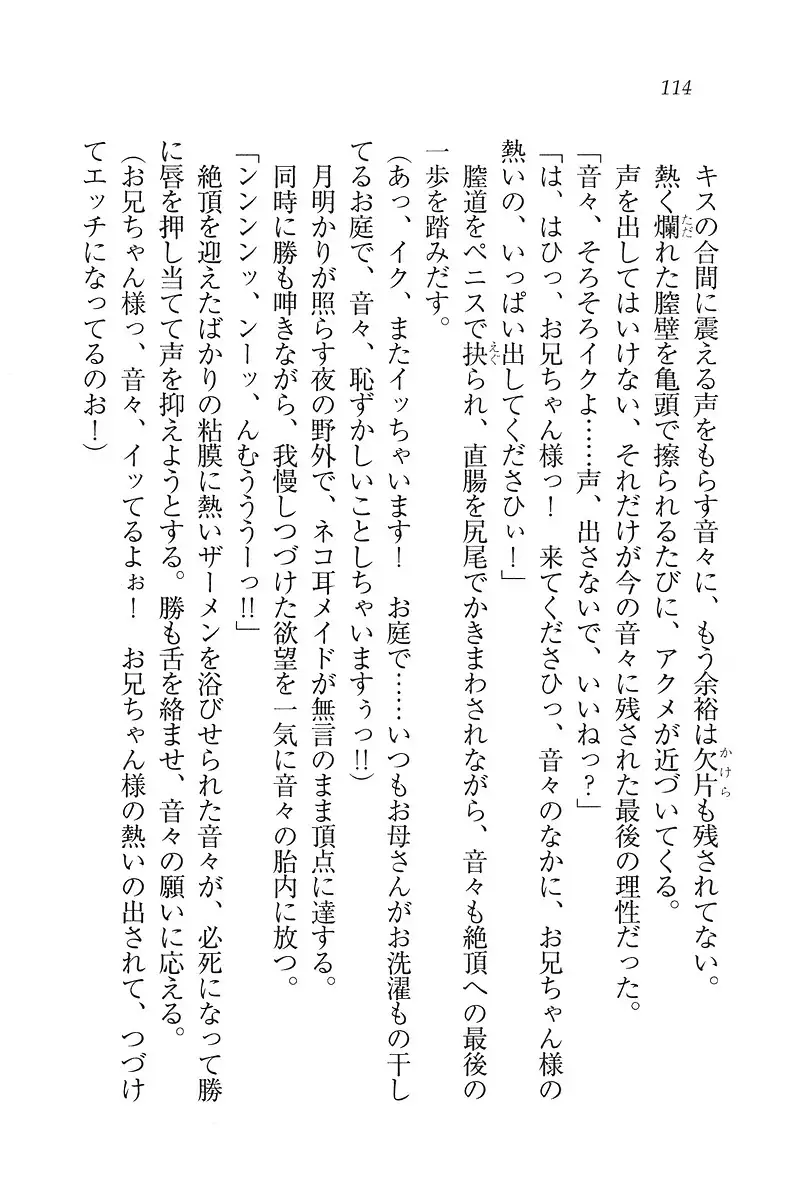 114
キスの合間に震える声をもらす音々に、もう余裕は欠片も残されてない。
熱く爛れた膣壁を亀頭で擦られるたびに、アクメが近づいてくる。
声を出してはいけない、それだけが今の音々に残された最後の理性だった。
「音々、そろそろイクよ……声、出さないで、いいねっ？」
「は、はひっ、お兄ちゃん様っ！　来てくださひっ、音々のなかに、お兄ちゃん様の
熱いの、いっぱい出してくださひぃ！」
膣道をペニスで抉られ、直腸を尻尾でかきまわされながら、音々も絶頂への最後の
一歩を踏みだす。
（あっ、イク、またイッちゃいます！　お庭で……いつもお母さんがお洗濯もの干し
てるお庭で、音々、恥ずかしいことしちゃいますぅっ!!）
月明かりが照らす夜の野外で、ネコ耳メイドが無言のまま頂点に達する。
同時に勝も呻きながら、我慢しつづけた欲望を一気に音々の胎内に放つ。
「ンンンンッ、ンーッ、んむぅううーっ!!」
絶頂を迎えたばかりの粘膜に熱いザーメンを浴びせられた音々が、必死になって勝
に唇を押し当てて声を抑えようとする。勝も舌を絡ませ、音々の願いに応える。
（お兄ちゃん様っ、音々、イッてるよぉ！　お兄ちゃん様の熱いの出されて、つづけ
てエッチになってるのお！）